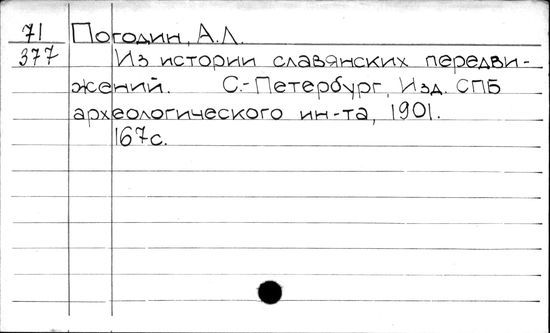 71 Погодин, А.Л.
377 Из истории славянских передви-
жений. С.-Петербург, Изд. СПБ
археологического ин-та, 1901.
167с.